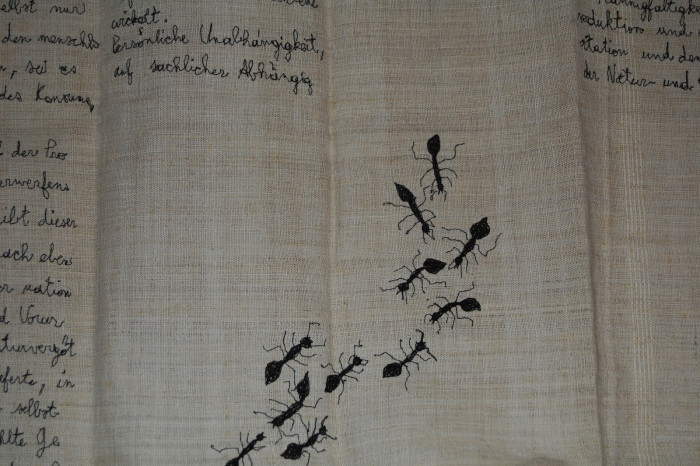 elbst nur
den menschli
, sei es
des Konsum
der Pro
erwerfens
eibt dieser
nach eben
er nation
d Vorur
turvergöt
eferte, in
selbst
hlte Ge
wickelt.
Persönliche Unabhängigkeit,
auf sachlicher Abhängig
annigfaltigke
roduktion und
itation und den
der Natur- und